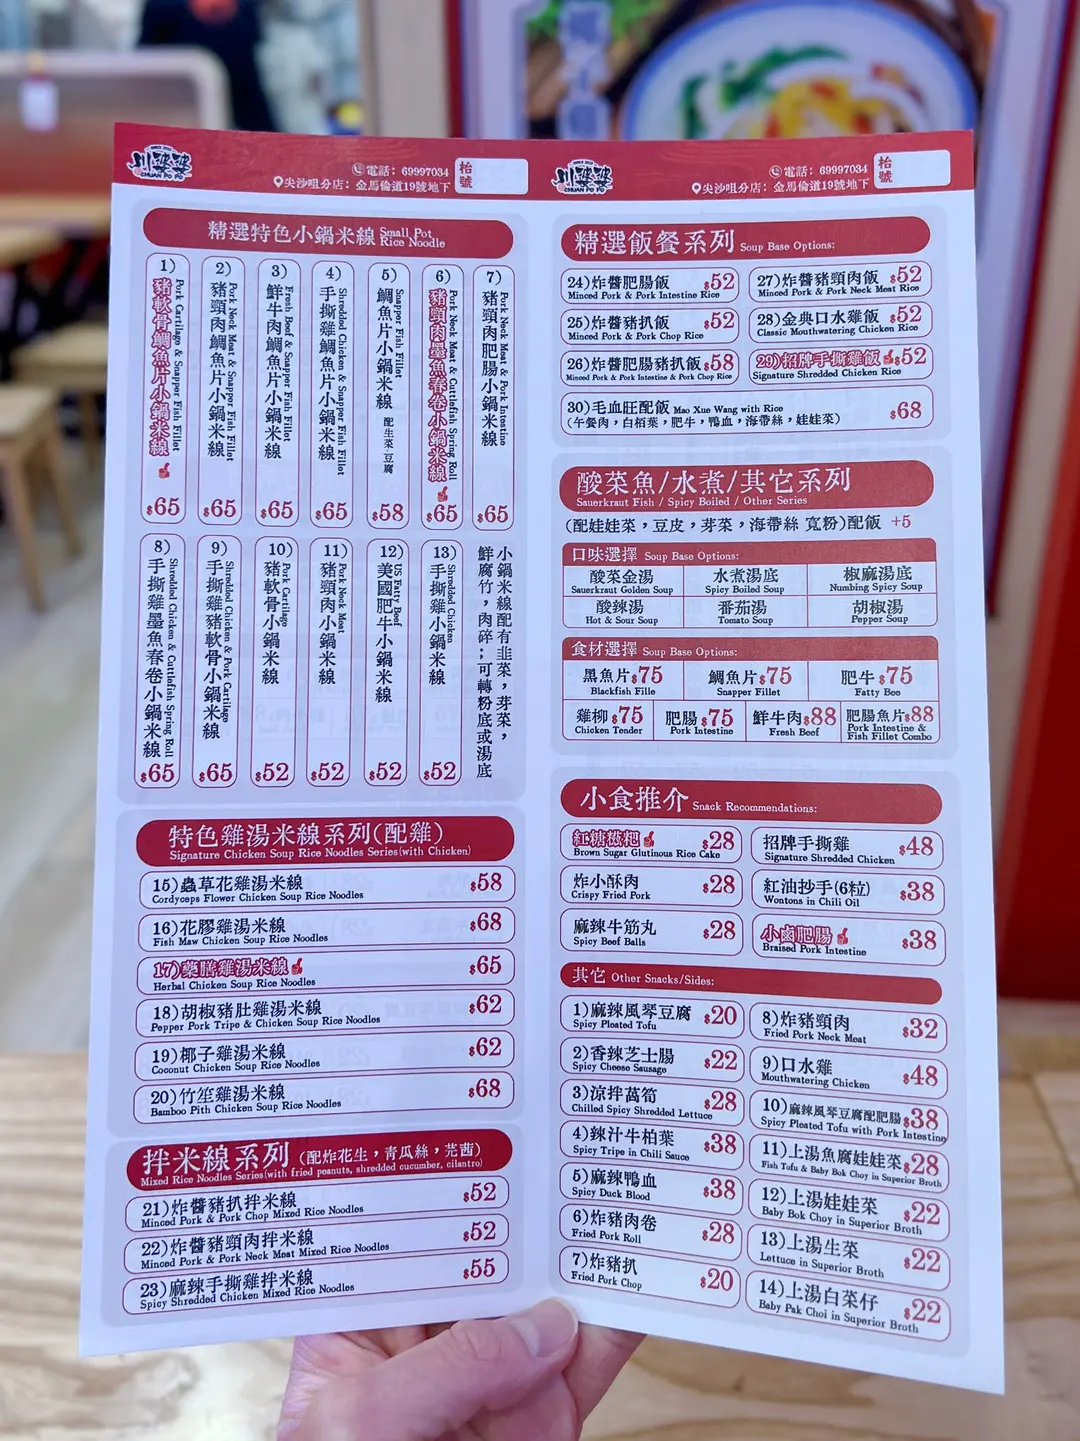 川婆婆
CHUAN PO PO
電話：69997034
尖沙咀分店：金馬倫道19號地下
枱號
川婆婆
CHUAN PO PO
電話：69997034
尖沙咀分店：金馬倫道19號地下
枱號
精選特色小鍋米線 Small Pot Rice Noodle
1)豬軟骨鯛魚片小鍋米線
Pork Cartilage & Snapper Fish Fillet
$65
2)豬頸肉鯛魚片小鍋米線
Pork Neck Meat & Snapper Fish Fillet
$65
3)鮮牛肉鯛魚片小鍋米線
Fresh Beef & Snapper Fish Fillet
$65
4)手撕雞鯛魚片小鍋米線
Shredded Chicken & Snapper Fish Fillet
$65
5)鯛魚片小鍋米線 配生菜·豆腐
Snapper Fish Fillet
$58
6)豬頸肉墨魚春卷小鍋米線
Pork Neck Meat & Cuttlefish Spring Roll
$65
7)豬頸肉肥腸小鍋米線
Pork Neck Meat & Pork Intestine
$65
8)手撕雞墨魚春卷小鍋米線
Shredded Chicken & Cuttlefish Spring Roll
$65
9)手撕雞豬軟骨小鍋米線
Shredded Chicken & Pork Cartilage
$65
10)豬軟骨小鍋米線
Pork Cartilage
$52
11)豬頸肉小鍋米線
Pork Neck Meat
$52
12)美國肥牛小鍋米線
US Fatty Beef
$52
13)手撕雞小鍋米線
Shredded Chicken
$52
小鍋米線配有韭菜，芽菜，
鮮腐竹，肉碎；可轉粉底或湯底
特色雞湯米線系列(配雞)
Signature Chicken Soup Rice Noodles Series(with Chicken)
15)蟲草花雞湯米線 $58
Cordyceps Flower Chicken Soup Rice Noodles
16)花膠雞湯米線 $68
Fish Maw Chicken Soup Rice Noodles
17)藥膳雞湯米線 $65
Herbal Chicken Soup Rice Noodles
18)胡椒豬肚雞湯米線 $62
Pepper Pork Tripe & Chicken Soup Rice Noodles
19)椰子雞湯米線 $62
Coconut Chicken Soup Rice Noodles
20)竹笙雞湯米線 $68
Bamboo Pith Chicken Soup Rice Noodles
拌米線系列 (配炸花生，青瓜絲，芫茜)
Mixed Rice Noodles Series(with fried peanuts, shredded cucumber, cilantro)
21)炸醬豬扒拌米線 $52
Minced Pork & Pork Chop Mixed Rice Noodles
22)炸醬豬頸肉拌米線 $52
Minced Pork & Pork Neck Meat Mixed Rice Noodles
23)麻辣手撕雞拌米線 $55
Spicy Shredded Chicken Mixed Rice Noodles
精選飯餐系列 Soup Base Options:
24)炸醬肥腸飯 $52
Minced Pork & Pork Intestine Rice
27)炸醬豬頸肉飯 $52
Minced Pork & Pork Neck Meat Rice
25)炸醬豬扒飯 $52
Minced Pork & Pork Chop Rice
28)金典口水雞飯 $52
Classic Mouthwatering Chicken Rice
26)炸醬肥腸豬扒飯 $58
Minced Pork & Pork Intestine & Pork Chop Rice
29)招牌手撕雞飯 $52
Signature Shredded Chicken Rice
30)毛血旺配飯 Mao Xue Wang with Rice $68
(午餐肉，白栢葉，肥牛，鴨血，海帶絲，娃娃菜)
酸菜魚/水煮/其它系列
Sauerkraut Fish / Spicy Boiled / Other Series
(配娃娃菜，豆皮，芽菜，海帶絲 寬粉)配飯 +5
口味選擇 Soup Base Options:
酸菜金湯
Sauerkraut Golden Soup
水煮湯底
Spicy Boiled Soup
椒麻湯底
Numbing Spicy Soup
酸辣湯
Hot & Sour Soup
番茄湯
Tomato Soup
胡椒湯
Pepper Soup
食材選擇 Soup Base Options:
黑魚片 $75
Blackfish Fille
鯛魚片 $75
Snapper Fillet
肥牛 $75
Fatty Bee
雞柳 $75
Chicken Tender
肥腸 $75
Pork Intestine
鮮牛肉 $88
Fresh Beef
肥腸魚片 $88
Pork Intestine &
Fish Fillet Combo
小食推介 Snack Recommendations:
紅糖糍粑 $28
Brown Sugar Glutinous Rice Cake
招牌手撕雞 $48
Signature Shredded Chicken
炸小酥肉 $28
Crispy Fried Pork
紅油抄手(6粒) $38
Wontons in Chili Oil
麻辣牛筋丸 $28
Spicy Beef Balls
小鹵肥腸 $38
Braised Pork Intestine
其它 Other Snacks/Sides:
1)麻辣風琴豆腐 $20
Spicy Pleated Tofu
8)炸豬頸肉 $32
Fried Pork Neck Meat
2)香辣芝士腸 $22
Spicy Cheese Sausage
9)口水雞 $48
Mouthwatering Chicken
3)涼拌萵筍 $28
Chilled Spicy Shredded Lettuce
10)麻辣風琴豆腐配肥腸 $38
Spicy Pleated Tofu with Pork Intestine
4)辣汁牛柏葉 $38
Spicy Tripe in Chili Sauce
11)上湯魚腐娃娃菜 $28
Fish Tofu & Baby Bok Choy in Superior Broth
5)麻辣鴨血 $38
Spicy Duck Blood
12)上湯娃娃菜 $22
Baby Bok Choy in Superior Broth
6)炸豬肉卷 $28
Fried Pork Roll
13)上湯生菜 $22
Lettuce in Superior Broth
7)炸豬扒 $20
Fried Pork Chop
14)上湯白菜仔 $22
Baby Pak Choi in Superior Broth